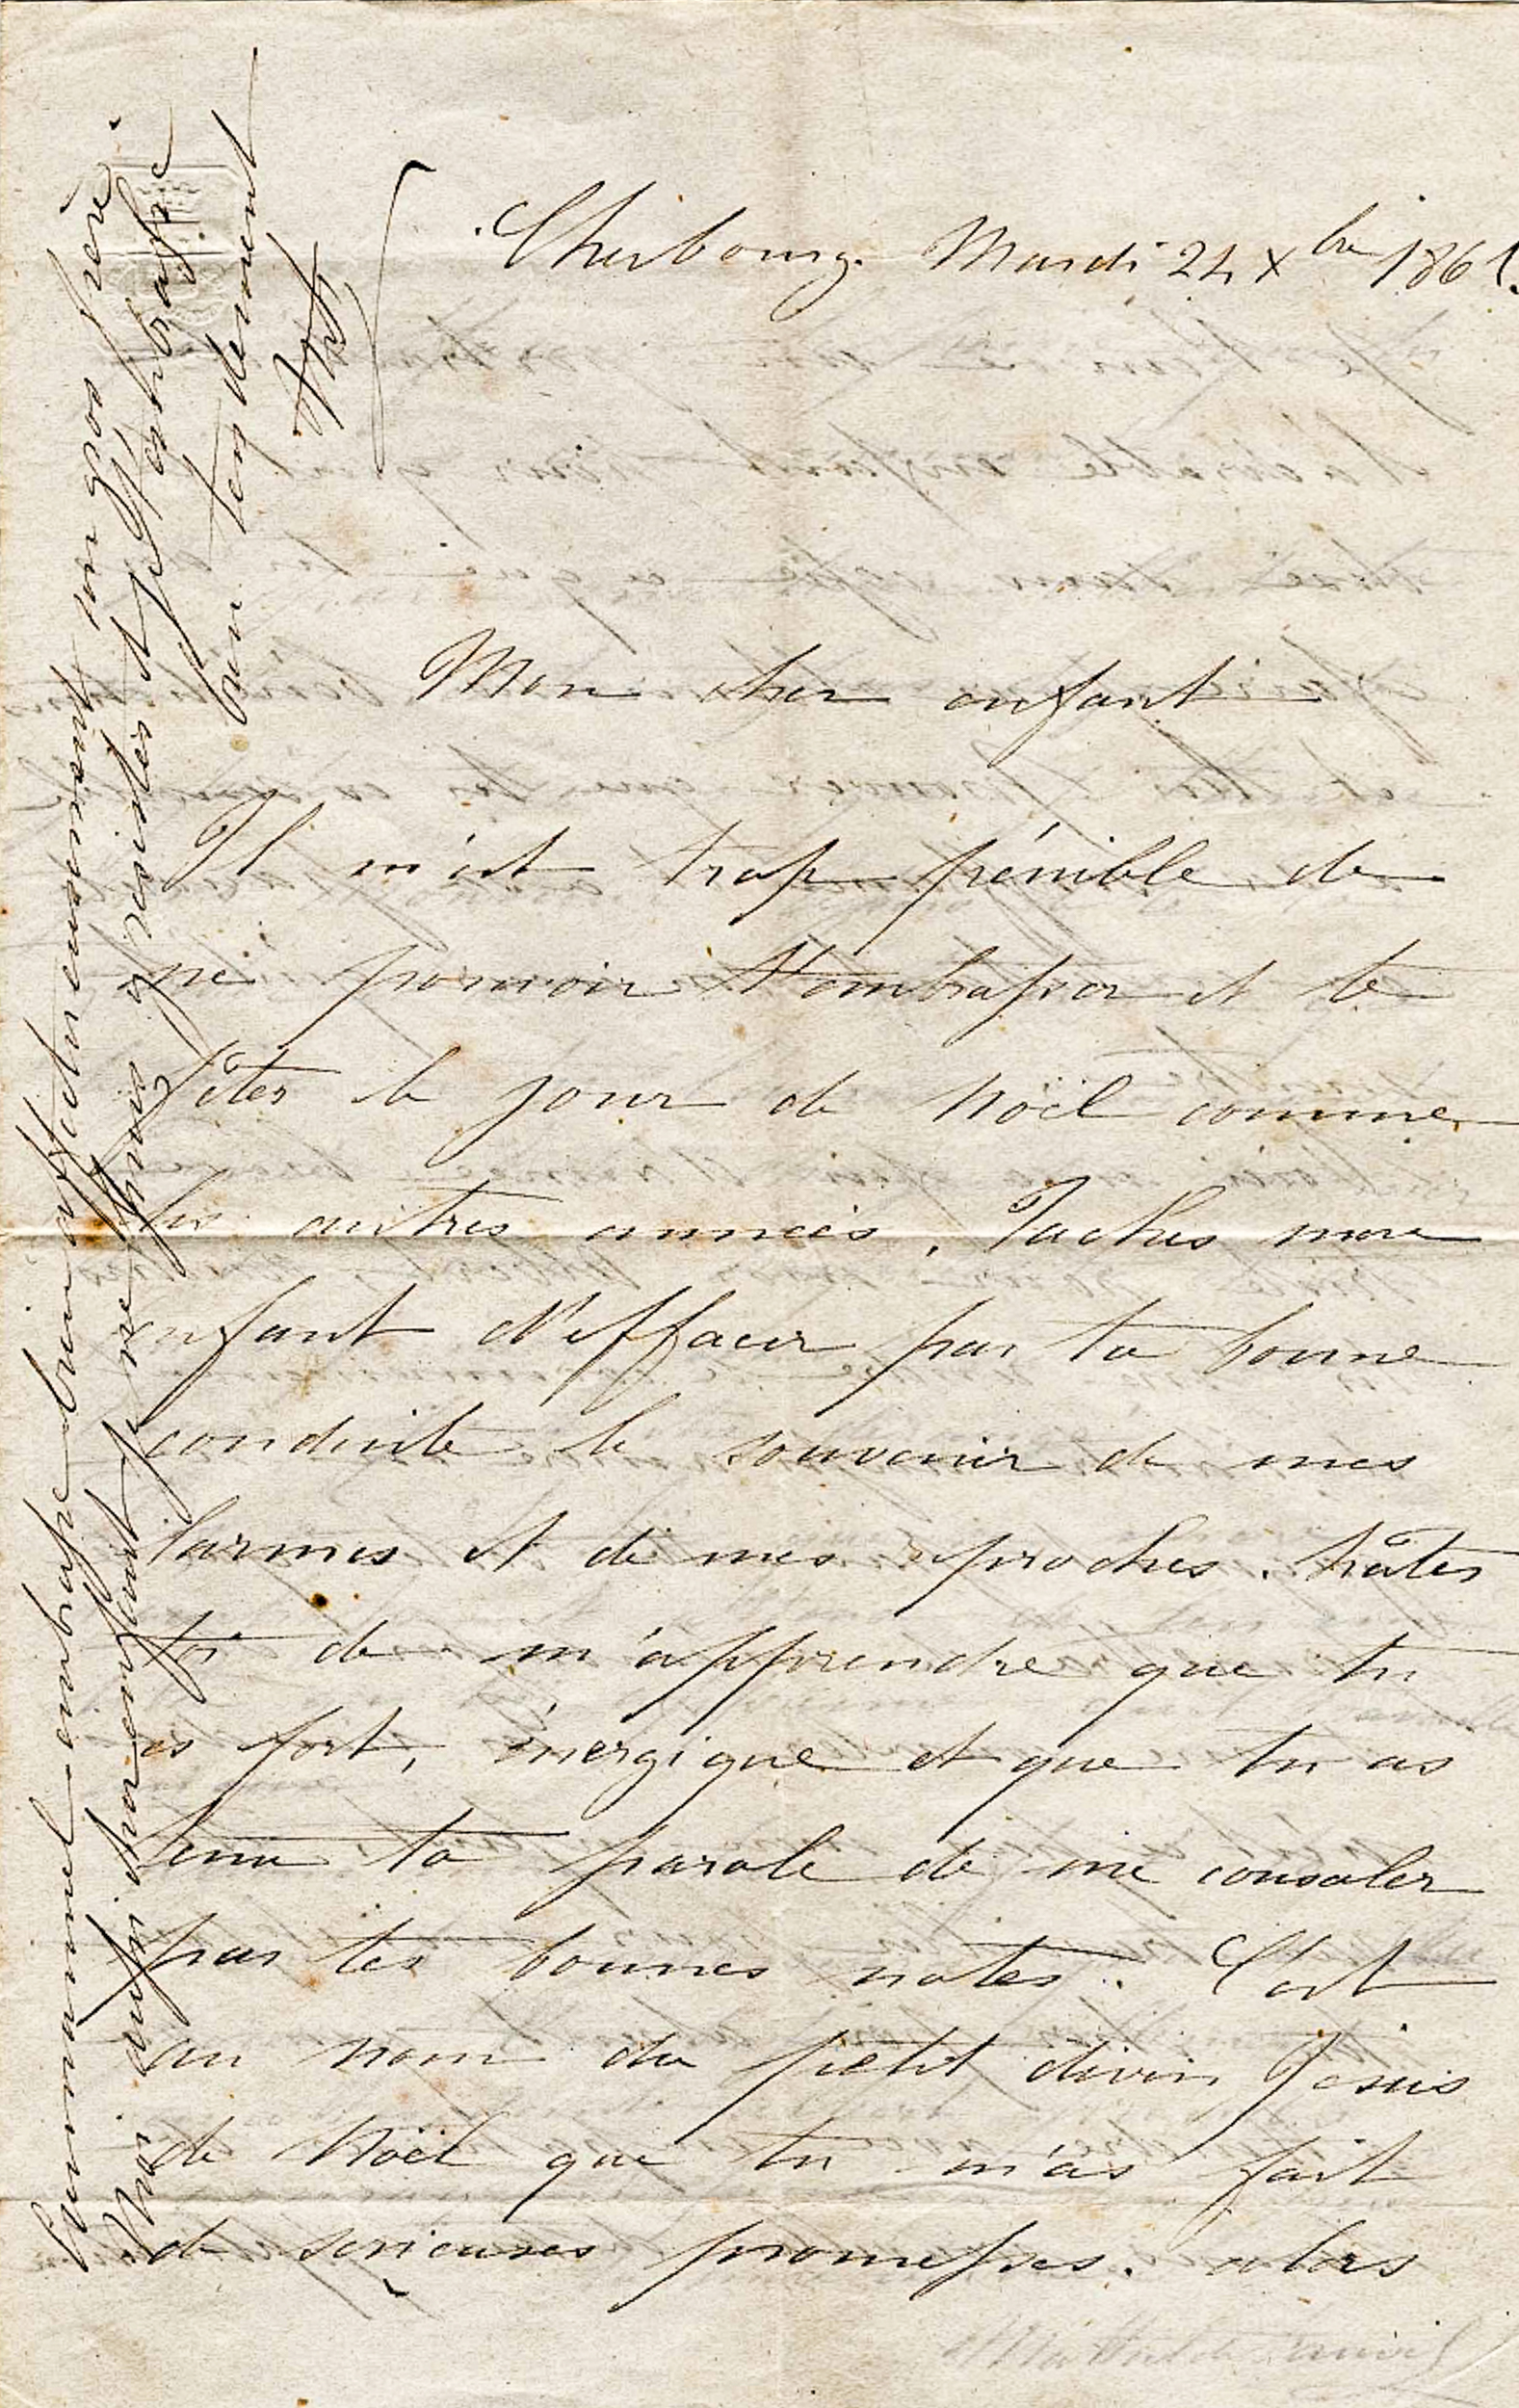 Cherbourg Mardi 24 Xbre 1861.
Mon cher enfant
Il m'est trop pénible de
ne pouvoir t'embrasser et te
fêter le jour de Noël comme
les autres années. Taches mon
enfant d'effacer par ta bonne
conduite le souvenir de mes
larmes et de mes reproches. hâtes
toi de m'apprendre que tu
es fort, énergique et que tu as
tenu ta parole de me consoler
par tes bonnes notes. C'est
au nom du petit divin Jesus
de Noël que tu m'as fait
de serieuses promesses. alors
Emmanuel embrasse bien affectueusement son gros frère.
Moi aussi cher enfant je ne puis y resister et je t'embrasse
bien tendrement